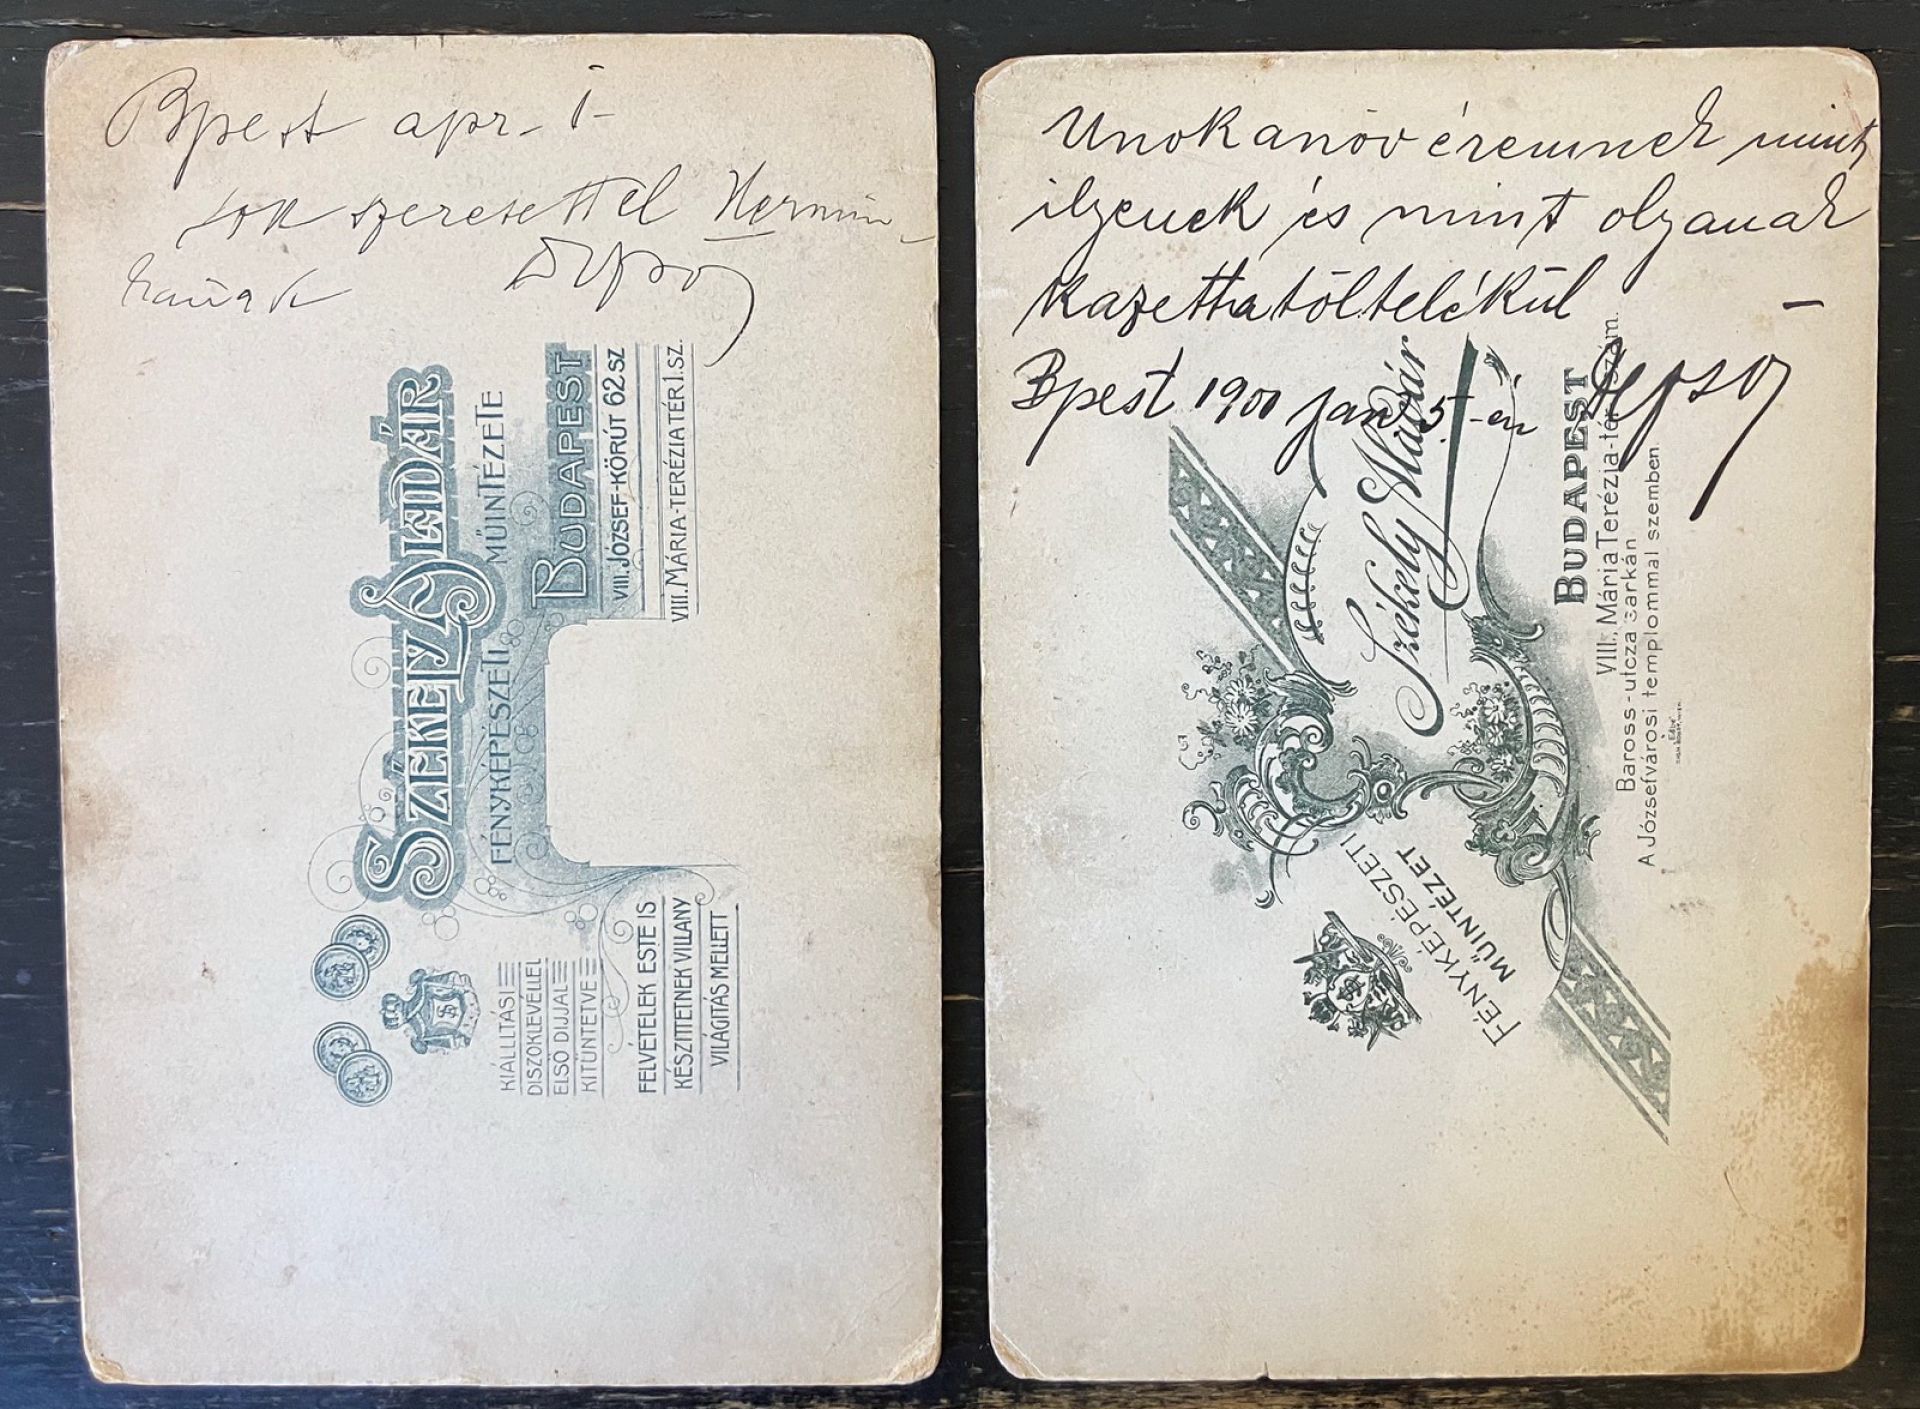 Bpest apr. 1-
sok szeretettel Hermin
kának Dezső
SZÉKELY ALADÁR
FÉNYKÉPÉSZETI MŰINTÉZETE
BUDAPEST
VIII. JÓZSEF-KÖRÚT 62 SZ
VIII. MÁRIA-TERÉZIA TÉR 1. SZ.
KIÁLLITÁSI
DISZOKLEVÉLLEL
ELSŐ DIJJAL
KITÜNTETVE
FELVÉTELEK ESTE IS
KÉSZITTETNEK VILLANY
VILÁGITÁS MELLETT
Unokanővéremnek mint
ilyenek és mint olyanak
kazetta töltelékül –
Bpest 1900 jan. 5-én Dezső
Székely Aladár
FÉNYKÉPÉSZETI
MŰINTÉZET
BUDAPEST
VIII., Mária Terézia-tér szám.
Baross-utcza sarkán
A Józsefvárosi templommal szemben